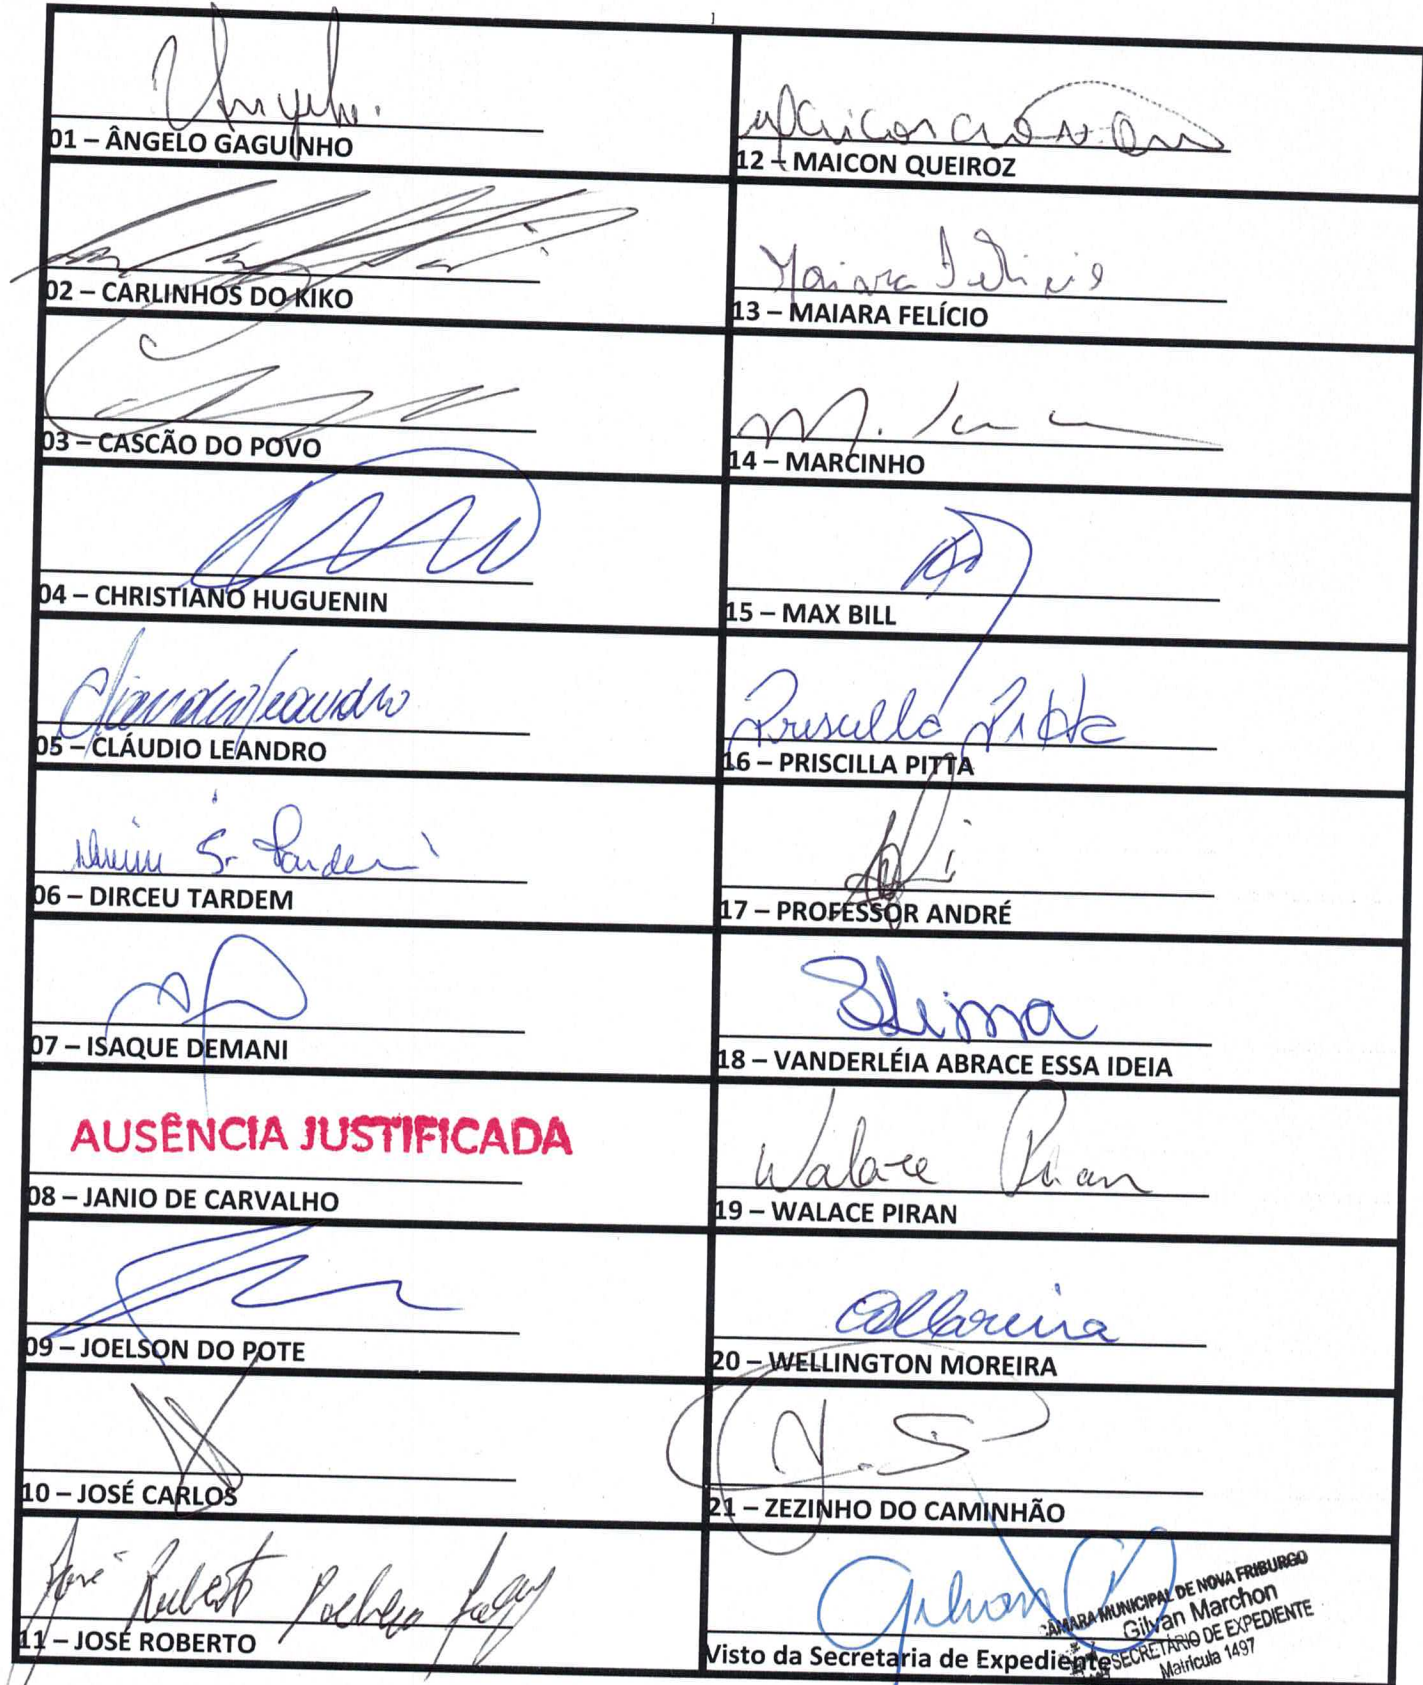 Angelo.
01 – ÂNGELO GAGUINHO
02 – CARLINHOS DO KIKO
03 – CASCÃO DO POVO
04 – CHRISTIANO HUGUENIN
05 – CLÁUDIO LEANDRO
06 – DIRCEU TARDEM
07 – ISAQUE DEMANI
AUSÊNCIA JUSTIFICADA
08 – JANIO DE CARVALHO
09 – JOELSON DO POTE
10 – JOSÉ CARLOS
José Roberto
11 – JOSÉ ROBERTO
12 – MAICON QUEIROZ
Maiara Felicio
13 – MAIARA FELÍCIO
14 – MARCINHO
15 – MAX BILL
Priscilla Pitta
16 – PRISCILLA PITTA
17 – PROFESSOR ANDRÉ
18 – VANDERLÉIA ABRACE ESSA IDEIA
Walace Piran
19 – WALACE PIRAN
20 – WELLINGTON MOREIRA
21 – ZEZINHO DO CAMINHÃO
Gilvan
Visto da Secretaria de Expediente
CÂMARA MUNICIPAL DE NOVA FRIBURGO
Gilvan Marchon
SECRETÁRIO DE EXPEDIENTE
Matrícula 1497